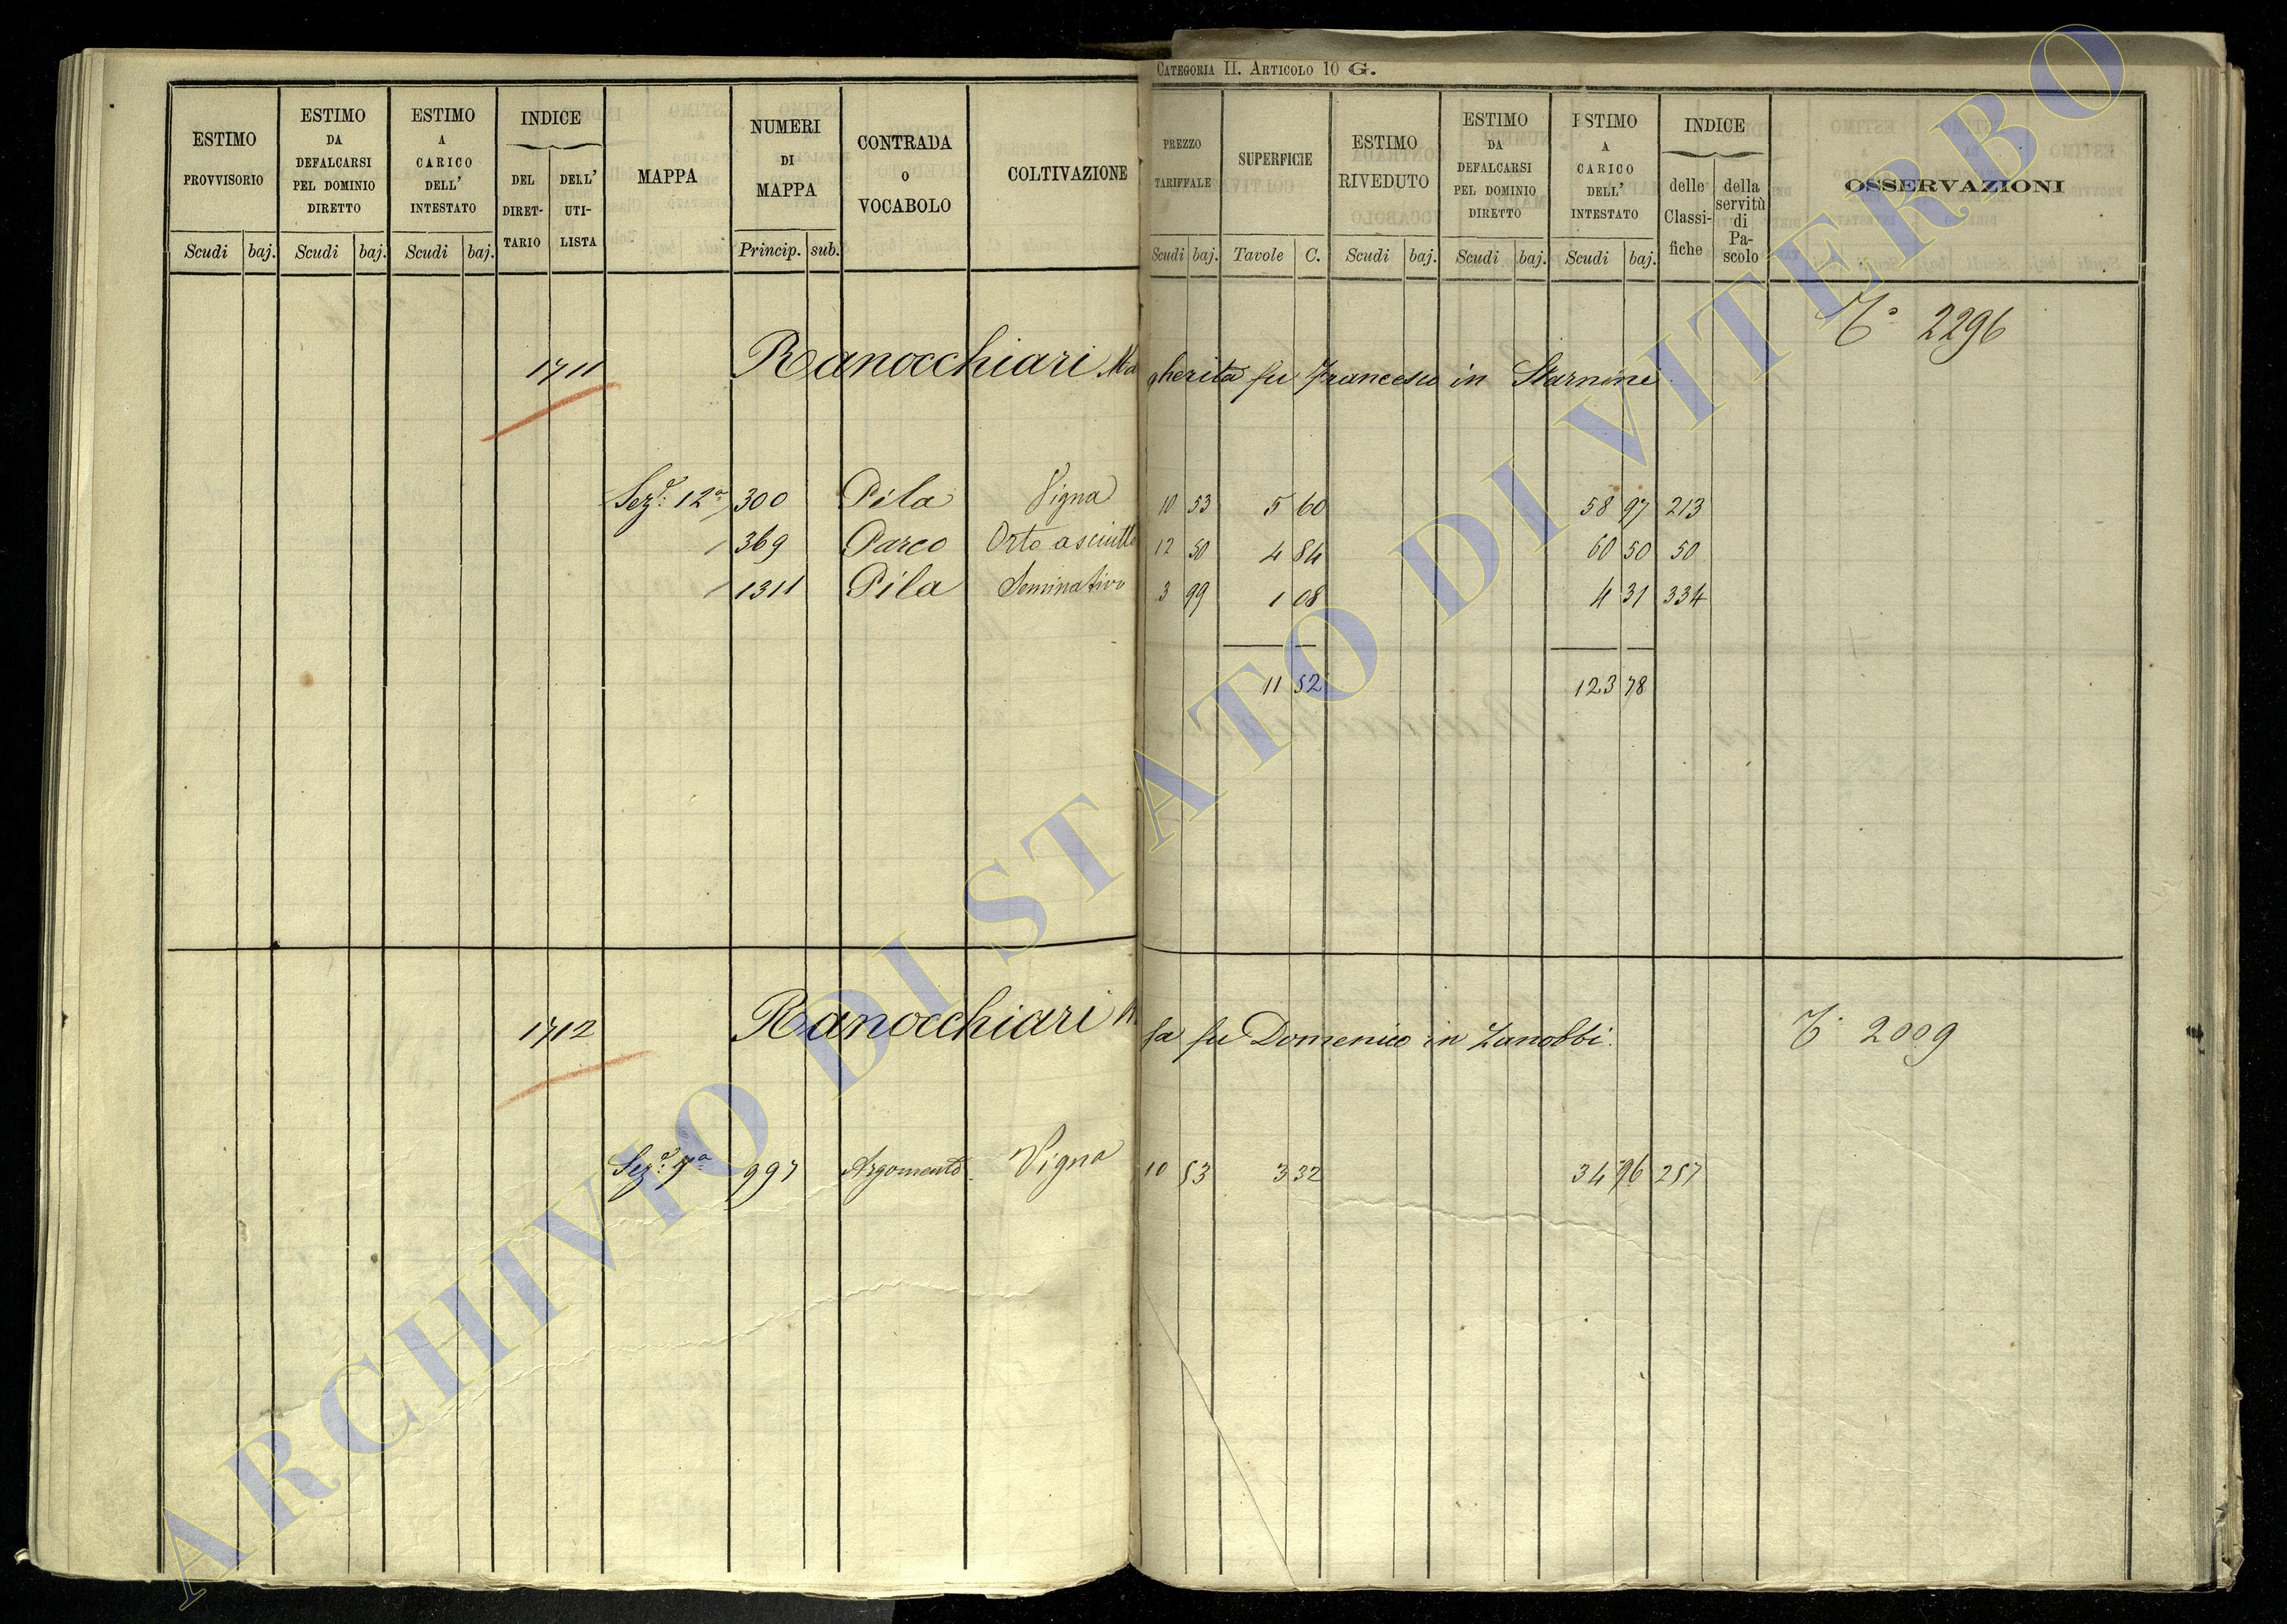 CATEGORIA II. ARTICOLO 10 G.
ESTIMO PROVVISORIO Scudi baj.
ESTIMO DA DEFALCARSI PEL DOMINIO DIRETTO Scudi baj.
ESTIMO A CARICO DELL' INTESTATO Scudi baj.
INDICE DEL DIRET- TARIO DELL' UTI- LISTA
MAPPA
NUMERI DI MAPPA Princip. sub.
CONTRADA O VOCABOLO
COLTIVAZIONE
PREZZO TARIFFALE Scudi baj.
SUPERFICIE Tavole C.
ESTIMO RIVEDUTO Scudi baj.
ESTIMO DA DEFALCARSI PEL DOMINIO DIRETTO Scudi baj.
ESTIMO A CARICO DELL' INTESTATO Scudi baj.
INDICE delle Classi- fiche della servitù di Pa- scolo
OSSERVAZIONI
2296
1711 Ranocchiari Mar gherita fu Francesco in Starnini
Sez.e 12a 300 Pila Vigna 10 53 5 60 58 97 213
369 Parco Orto asciutto 12 50 4 84 60 50 50
1311 Pila Seminativo 3 99 1 08 4 31 334
11 52 123 78
1712 Ranocchiari sa fu Domenico in Zanobbi. 2009
Sez.e 7a 997 Argomento Vigna 10 53 3 32 34 96 257
ARCHIVIO DI STATO DI VITERBO